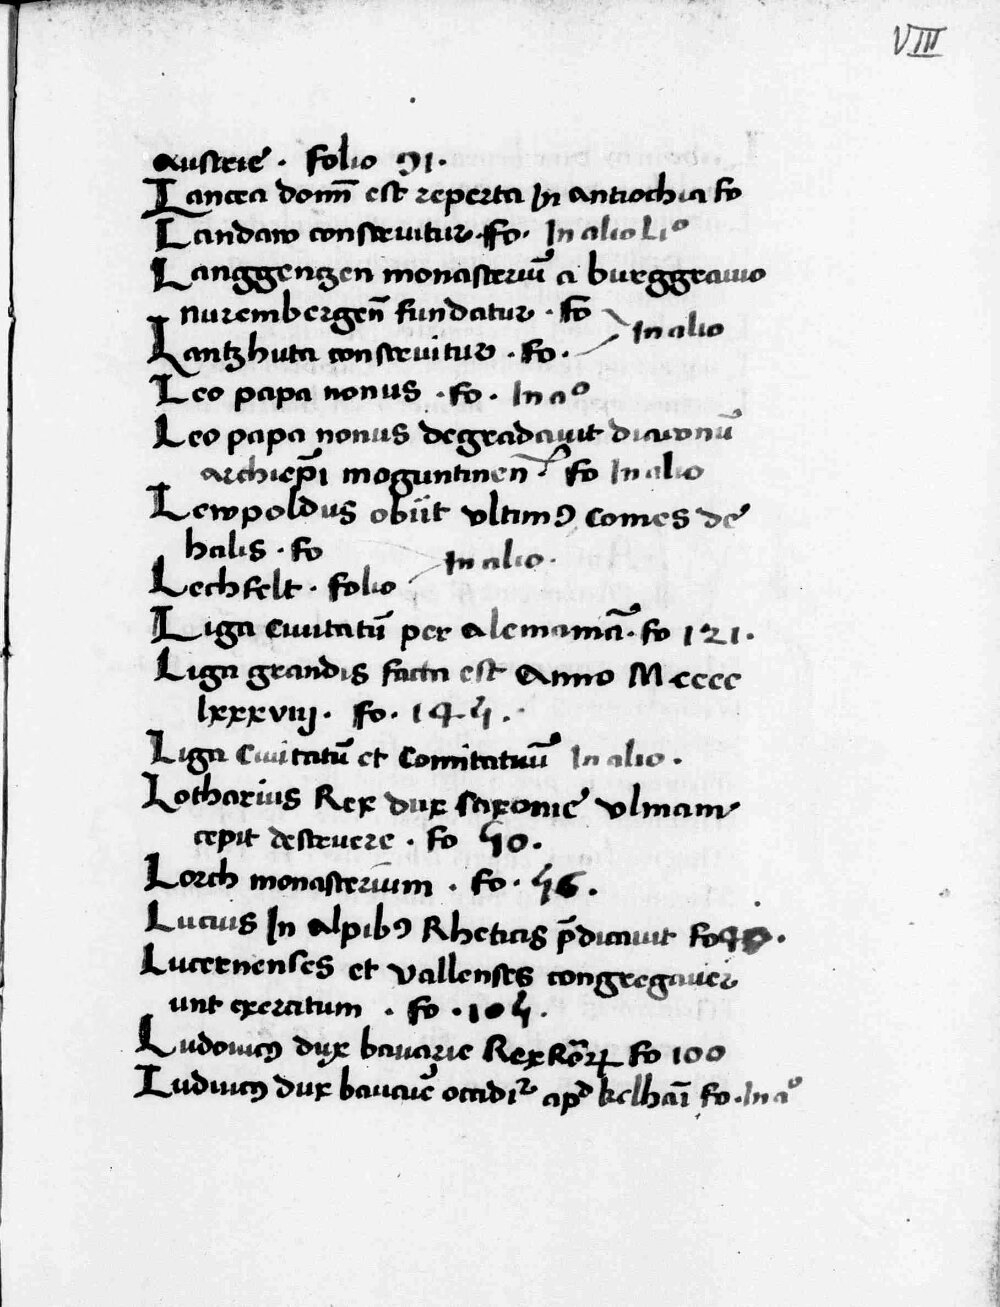 VIII
Austrie . Folio 91.
Lancea domī est reperta In Antiochia fo
Landaw construitur . fo . In alio Liº
Langgentzen monasteriū a burggravio
nurembergeñ fundatur . fo
In alio
Lantzhuta construitur . fo .
Leo papa nonus . fo . In aº
Leo papa nonus degradavit diaconū
archiepi̅ moguntinen̄ . fo In alio
Lewpoldus obiit ultimꝰ Comes de
halis . fo
In alio .
Lechfelt . folio
Liga Civitatū per Alemaniā . fo 121 .
Liga grandis facta est Anno Mcccc
lxxxviij . fo . 145 .
Liga Civitatū et Comitatuū In alio .
Lotharius Rex dux saxonie Ulmam
cepit destruere . fo 50 .
Lorch monasterium . fo . 56 .
Lucius In Alpibꝰ Rheticis p̄dicavit fo
Lucernenses et Vallenses congregaver
unt exercitum . fo . 105 .
Ludovicꝰ dux bavarie Rex Rōꝝ fo 100
Ludvicꝰ dux bavarie occidiᷣ apd kelhaī fo . In aº